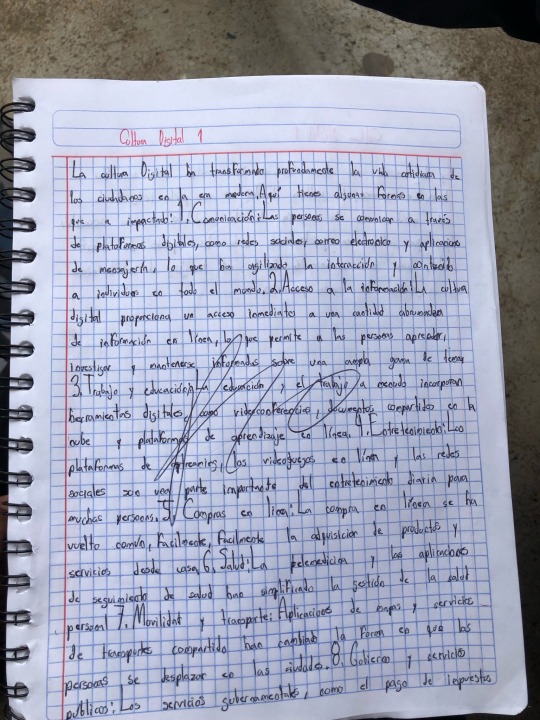 Cultura Digital 1
La cultura Digital ha transformado profundamente la vida cotidiana de
los ciudadanos en la era moderna. Aquí tienes algunas formas en las
que a impactado: 1. Comunicación: Las personas se comunican a través
de plataformas digitales, como redes sociales, correo electronico y aplicaciones
de mensajería, lo que ha agilizado la interacción y conectado
a individuos en todo el mundo. 2. Acceso a la información: La cultura
digital proporciona un acceso inmediatos a una cantidad abrumadora
de información en línea, lo que permite a las personas aprender,
investigar y mantenerse informadas sobre una amplia gama de temas
3. Trabajo y educación: La educación y el trabajo a menudo incorporan
herramientas digitales como videoconferencias, documentos compartidos en la
nube y plataformas de aprendizaje en línea. 4. Entretenimiento: Las
plataformas de streaming, los videojuegos en línea y las redes
sociales son una parte importante del entretenimiento diario para
muchas personas. 5. Compras en linea: La compra en línea se ha
vuelto común, facilmente, facilmente la adquisicion de productos y
servicios desde casa. 6. Salud: La telemedicina y las aplicaciones
de seguimiento de salud han simplificado la gestión de la salud
personal 7. Movilidad y transporte: Aplicaciones de mapas y servicios
de transportes compartido han cambiado la forma en que las
personas se desplazan en las ciudades. 8. Gobierno y servicios
publicos: Los servicios gubernamentales, como el pago de impuestos